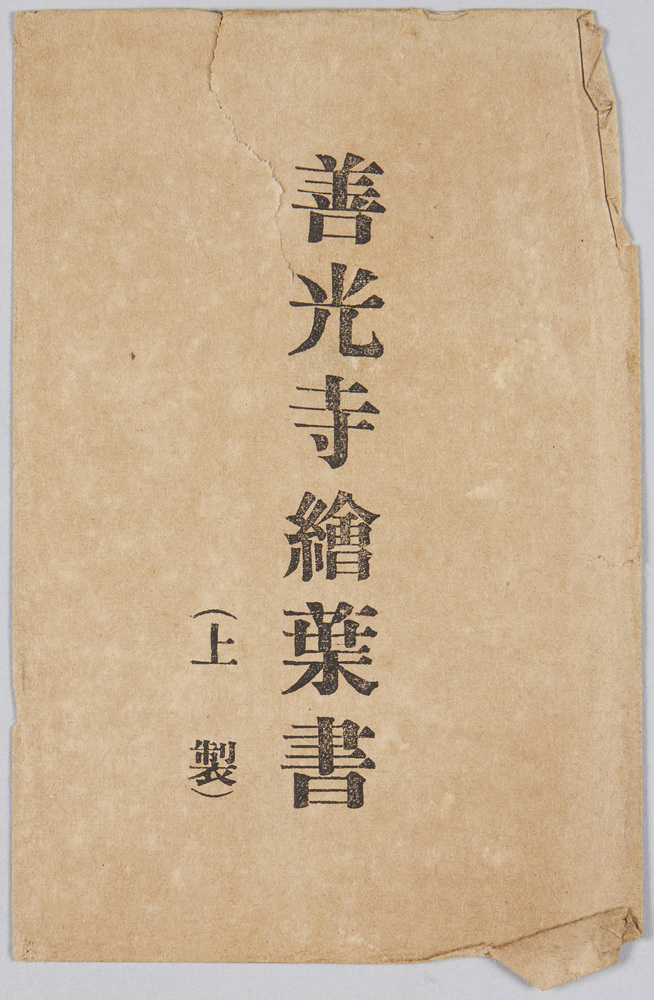 善光寺繪葉書
(上製)